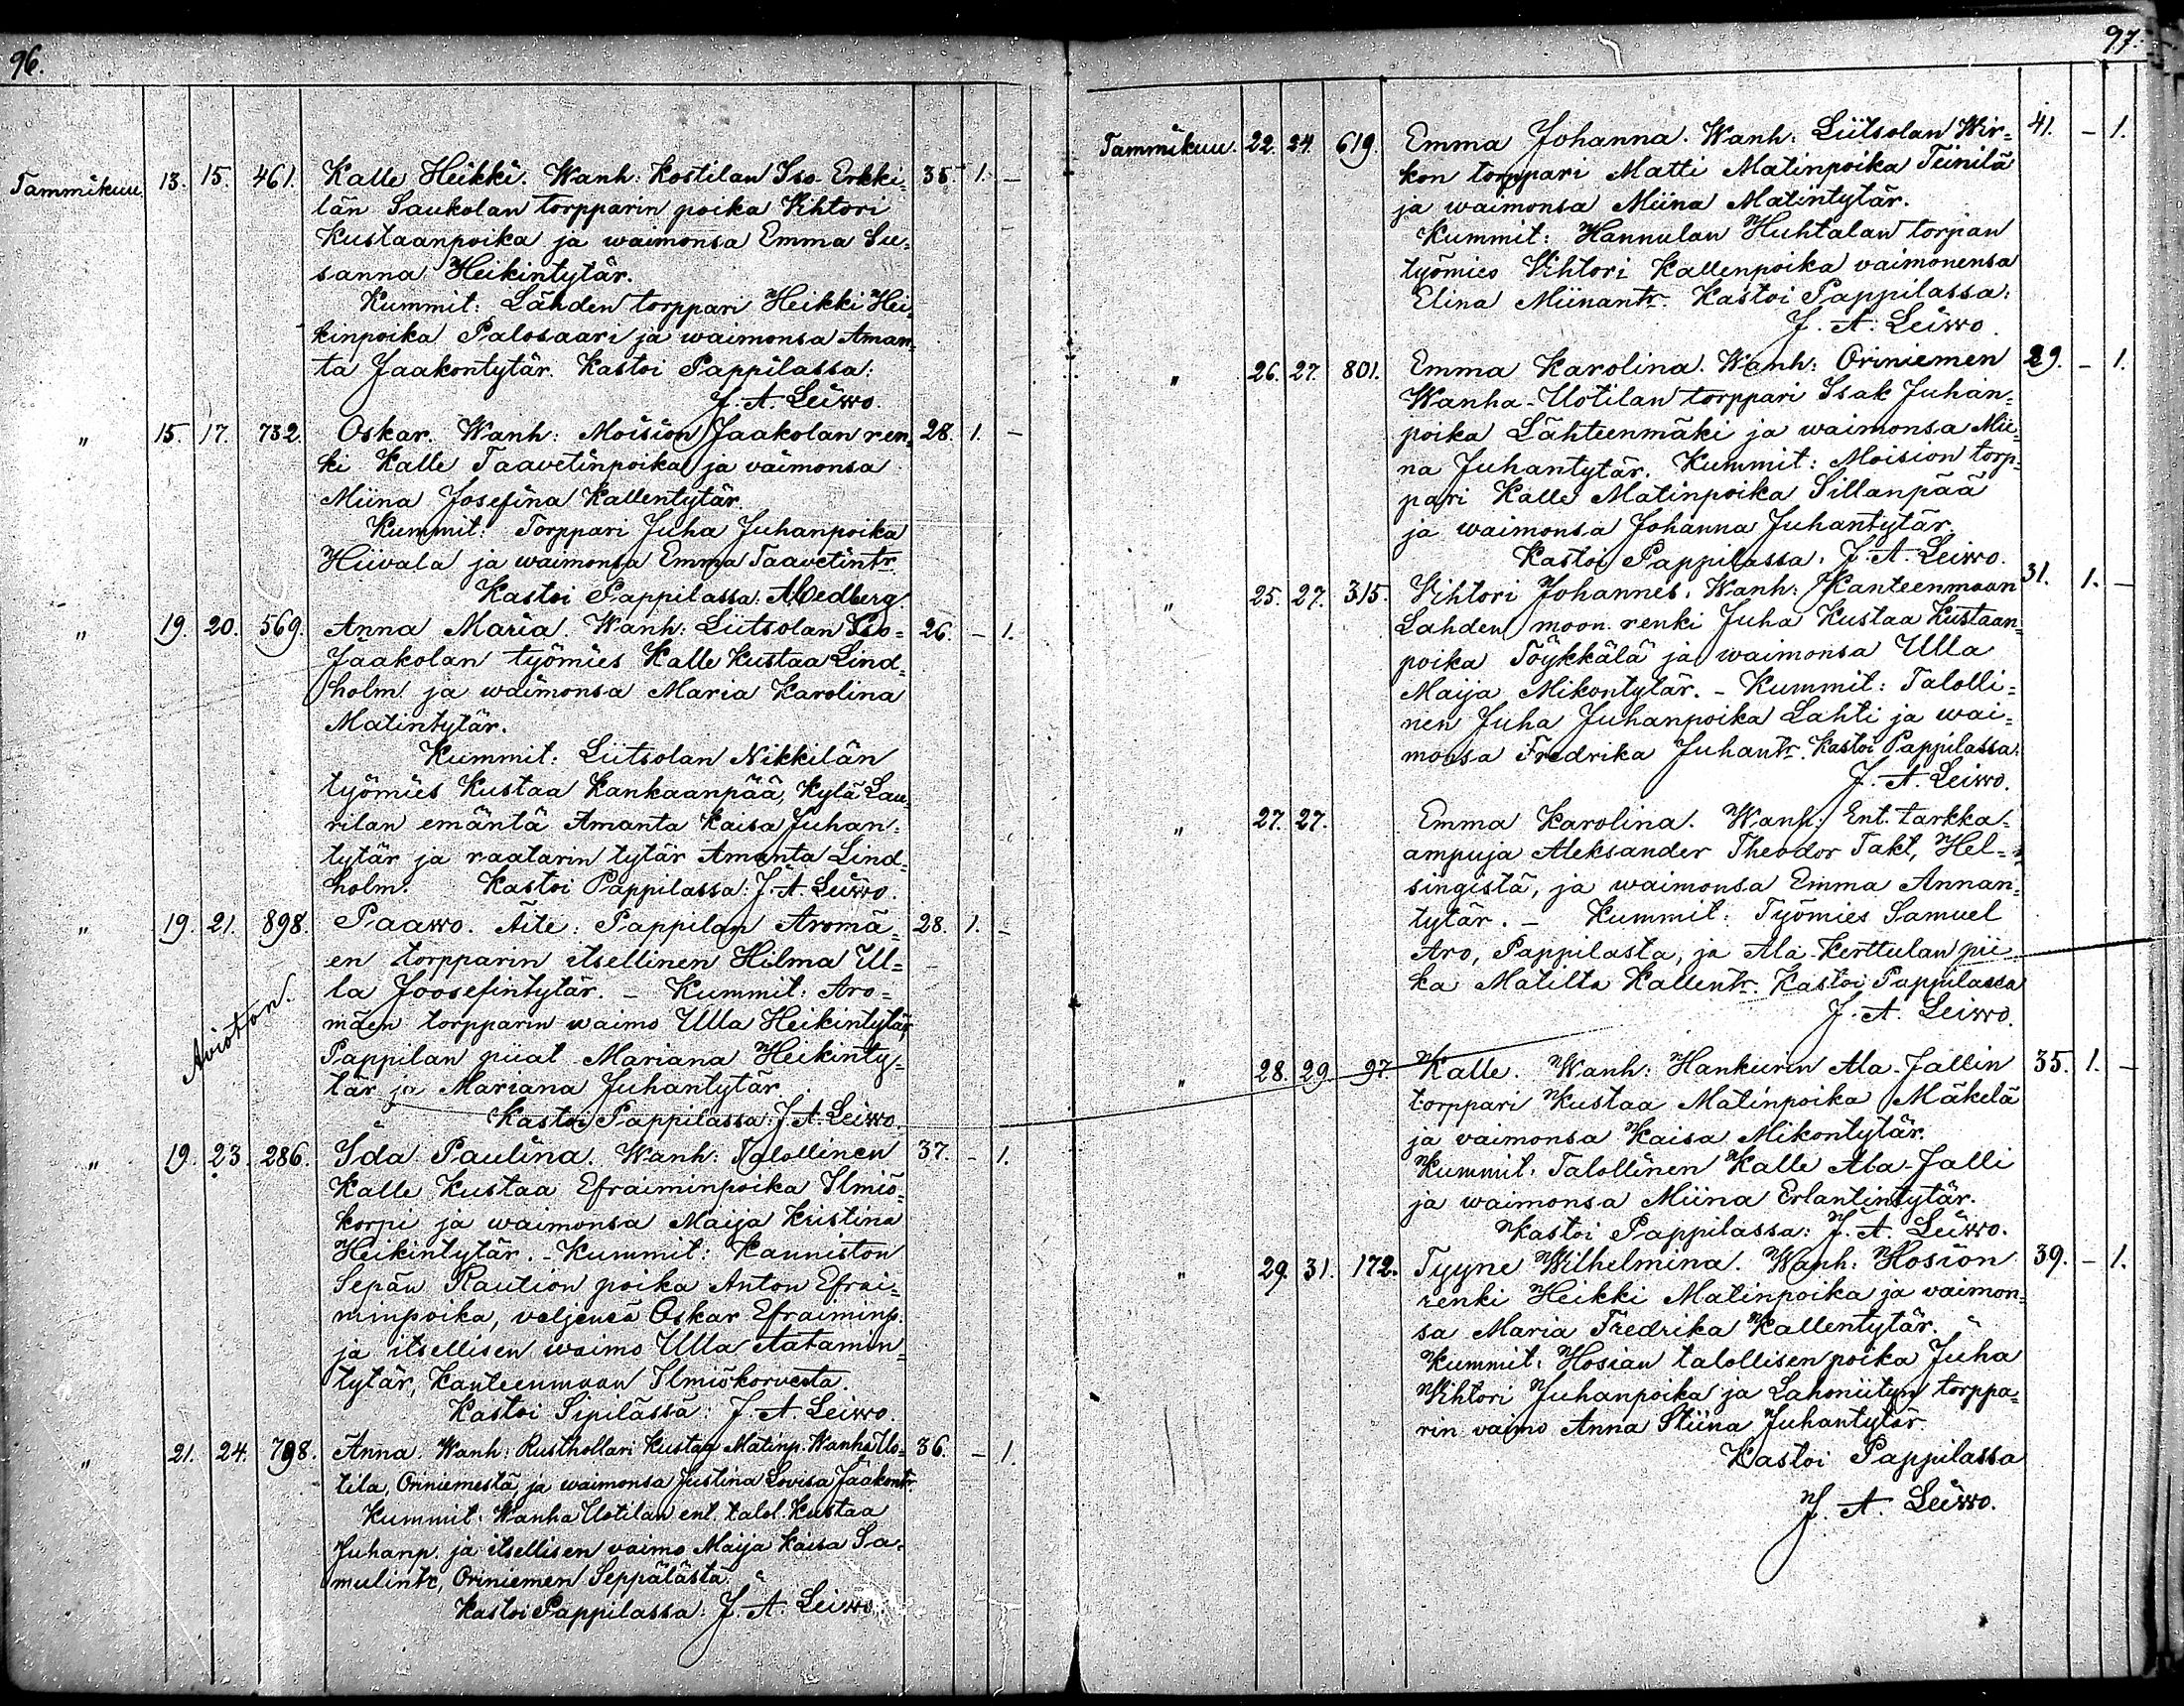 96.
Tammikuu 13. 15. 461. Kalle Heikki. Wanh: Kostilan Iso-Erkki- 35. 1. –
län Saukolan torpparin poika Vihtori
Kustaanpoika ja waimonsa Emma Su-
sanna Heikintytär.
Kummit: Lähden torppari Heikki Hei-
kinpoika Palosaari ja waimonsa Aman-
ta Jaakontytär. Kastoi Pappilassa:
J. A. Leiwo.
" 15. 17. 732. Oskar. Wanh: Moision Jaakolan ren- 28. 1. –
ki Kalle Taavetinpoika ja vaimonsa
Miina Josefina Kallentytär.
Kummit: Torppari Juha Juhanpoika
Hiivala ja waimonsa Emma Taavetintr.
Kastoi Pappilassa:
" 19. 20. 569. Anna Maria. Wanh: Liitsolan Iso- 26. – 1.
Jaakolan työmies Kalle Kustaa Lind-
holm ja waimonsa Maria Karolina
Matintytär.
Kummit: Liitsolan Nikkilän
työmies Kustaa Kankaanpää, Kylä Lau-
rilan emäntä Amanta Kaisa Juhan-
tytär ja raatarin tytär Amanta Lind-
holm. Kastoi Pappilassa: J. A. Leiwo.
" 19. 21. 898. Paawo. Äite: Pappilan Aromä- 28. 1. –
en torpparin itsellinen Hilma Ul-
la Joosefintytär. – Kummit: Aro-
mäen torpparin waimo Ulla Heikintytär,
Pappilan piiat Mariana Heikinty-
tär ja Mariana Juhantytär.
Kastoi Pappilassa: J. A. Leiwo.
Avioton.
" 19. 23. 286. Ida Paulina. Wanh: Talollinen 37. – 1.
Kalle Kustaa Efraiminpoika Ilmiö-
korpi ja waimonsa Maija Kristina
Heikintytär. – Kummit: Kanniston
Sepän Raution poika Anton Efrai-
minpoika, veljensä Oskar Efraiminp.
ja itsellisen waimo Ulla Aatamin-
tytär, Kanteenmaan Ilmiökorvesta.
Kastoi Sipilässä: J. A. Leiwo.
" 21. 24. 798. Anna. Wanh: Rusthollari Kustaa Matinp. Wanha Uo- 36. – 1.
tila, Oriniemestä, ja waimonsa Justina Lovisa Jaakontr.
Kummit: Wanha Uotilan ent. talol. Kustaa
Juhanp. ja itsellisen vaimo Maija Kaisa Sa-
mulintr, Oriniemen Seppälästä.
Kastoi Pappilassa: J. A. Leiwo.
97.
Tammikuu. 22. 24. 619. Emma Johanna. Wanh: Liitsolan Wir- 41. – 1.
kon torppari Matti Matinpoika Teinilä
ja waimonsa Miina Matintytär.
Kummit: Hannulan Huhtalan torpan
työmies Vihtori Kallenpoika vaimonensa
Elina Miinantr. Kastoi Pappilassa:
J. A. Leiwo.
" 26. 27. 801. Emma Karolina. Wanh: Oriniemen 29. – 1.
Wanha-Uotilan torppari Isak Juhan-
poika Lähteenmäki ja waimonsa Mii-
na Juhantytär. Kummit: Moision torp-
pari Kalle Matinpoika Sillanpää
ja waimonsa Johanna Juhantytär.
Kastoi Pappilassa: J. A. Leiwo.
" 25. 27. 315. Vihtori Johannes. Wanh: Kanteenmaan 31. 1. –
Lahden moon. renki Juha Kustaa Kustaan-
poika Töykkälä ja waimonsa Ulla
Maija Mikontytär. – Kummit: Talolli-
nen Juha Juhanpoika Lahti ja wai-
monsa Fredrika Juhantr. Kastoi Pappilassa:
J. A. Leiwo.
" 27. 27. Emma Karolina. Wanh: Ent. tarkka-
ampuja Aleksander Theodor Takt, Hel-
singistä, ja waimonsa Emma Annan-
tytär. – Kummit: Työmies Samuel
Aro, Pappilasta, ja Ala-Kerttulan pii-
ka Matilta Kallentr. Kastoi Pappilassa
J. A. Leiwo.
" 28. 29. 97. Kalle. Wanh: Hankurin Ala-Jallin 35. 1. –
torppari Kustaa Matinpoika Mäkelä
ja vaimonsa Kaisa Mikontytär.
Kummit: Talollinen Kalle Ala-Jalli
ja waimonsa Miina Erlantintytär.
Kastoi Pappilassa: J. A. Leiwo.
" 29. 31. 172. Tyyne Wilhelmina. Wanh: Hosion 39. – 1.
renki Heikki Matinpoika ja vaimon-
sa Maria Fredrika Kallentytär.
Kummit: Hosian talollisen poika Juha
Vihtori Juhanpoika ja Lahoniityn torppa-
rin vaimo Anna Stiina Juhantytär
Kastoi Pappilassa
J. A. Leiwo.